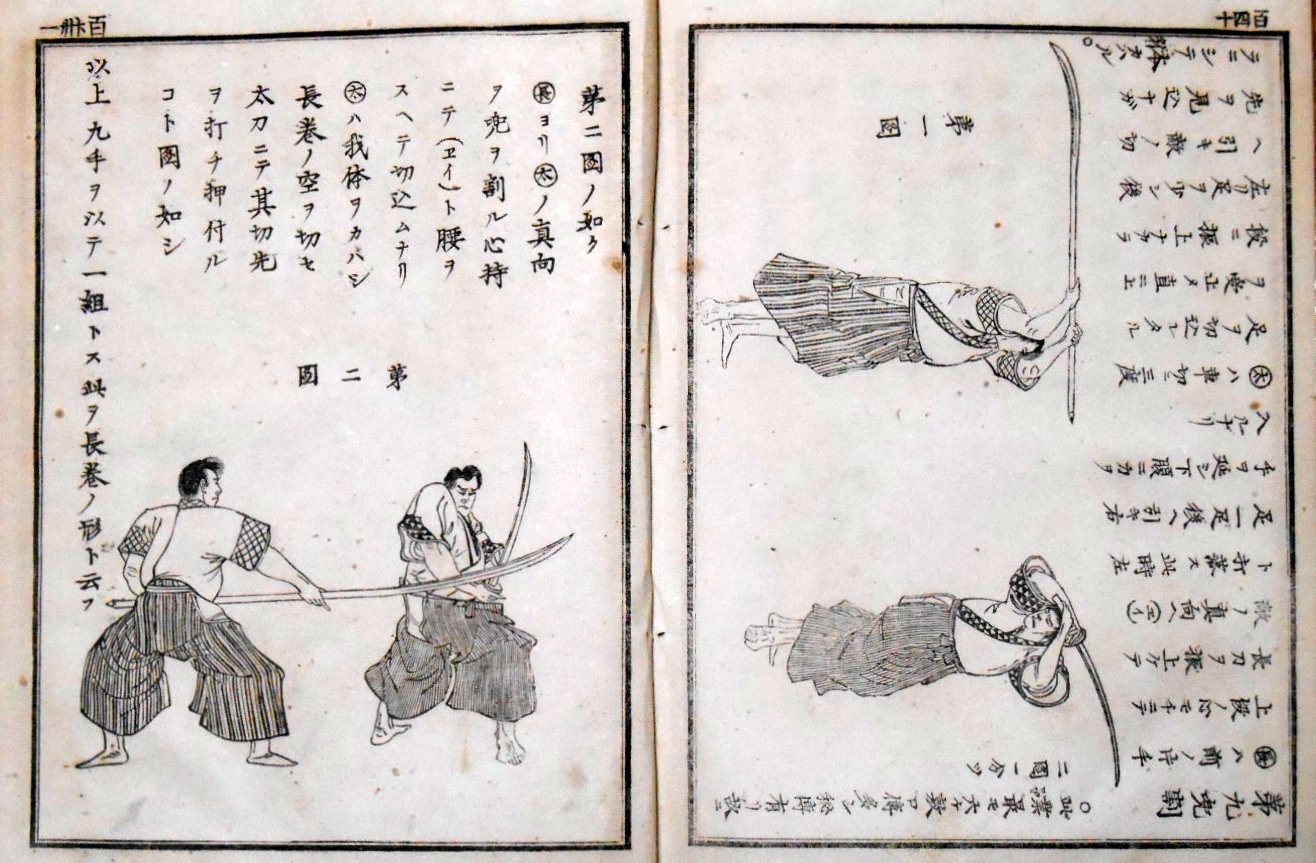 百四十
第九兜割
○此業最モ六ケ敷口傳多シ秘傳有リ故ニ
二圖ニ分ツ
㊤ハ前ノ片手
上段ノ心モチニテ
長刀ヲ振上ケテ
敵ノ真向ヘ(ヱイ)
ト打落ス此時左
足一足後ヘ引キ右
手ヲ延シ下腹ニ力ヲ
入ルナリ
太ハ車切ニ三度
足ヲ切込レタル
ヲ受止メ直ニ上
段ニ振上ナガラ
左リ足ヲ少シ後
ヘ引キ敵ノ切
先ヲ見込ナガ
ラニシテ体カハル
第一圖
百卅一
第二圖ノ如ク
長ヨリ太ノ真向
ヲ兜ヲ割ル心持
ニテ(ヱイ)ト腰ヲ
スヘテ切込ムナリ
太ハ我体ヲカハシ
長巻ノ空ヲ切セ
太刀ニテ其切先
ヲ打チ押付ル
コト圖ノ如シ
第二圖
以上九手ヲ以テ一組トス此ヲ長巻ノ形ト云フ